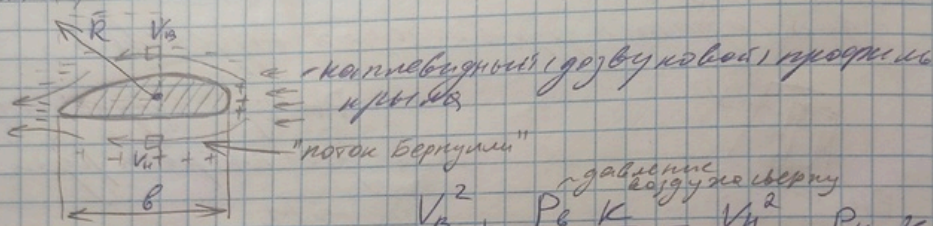 R Vв
-каплевидный (дозвуковой) профиль
крыла
Vн
"поток Бернулли"
~давление
воздуха сверху
в
Vв² Pв K Vн² Pн K